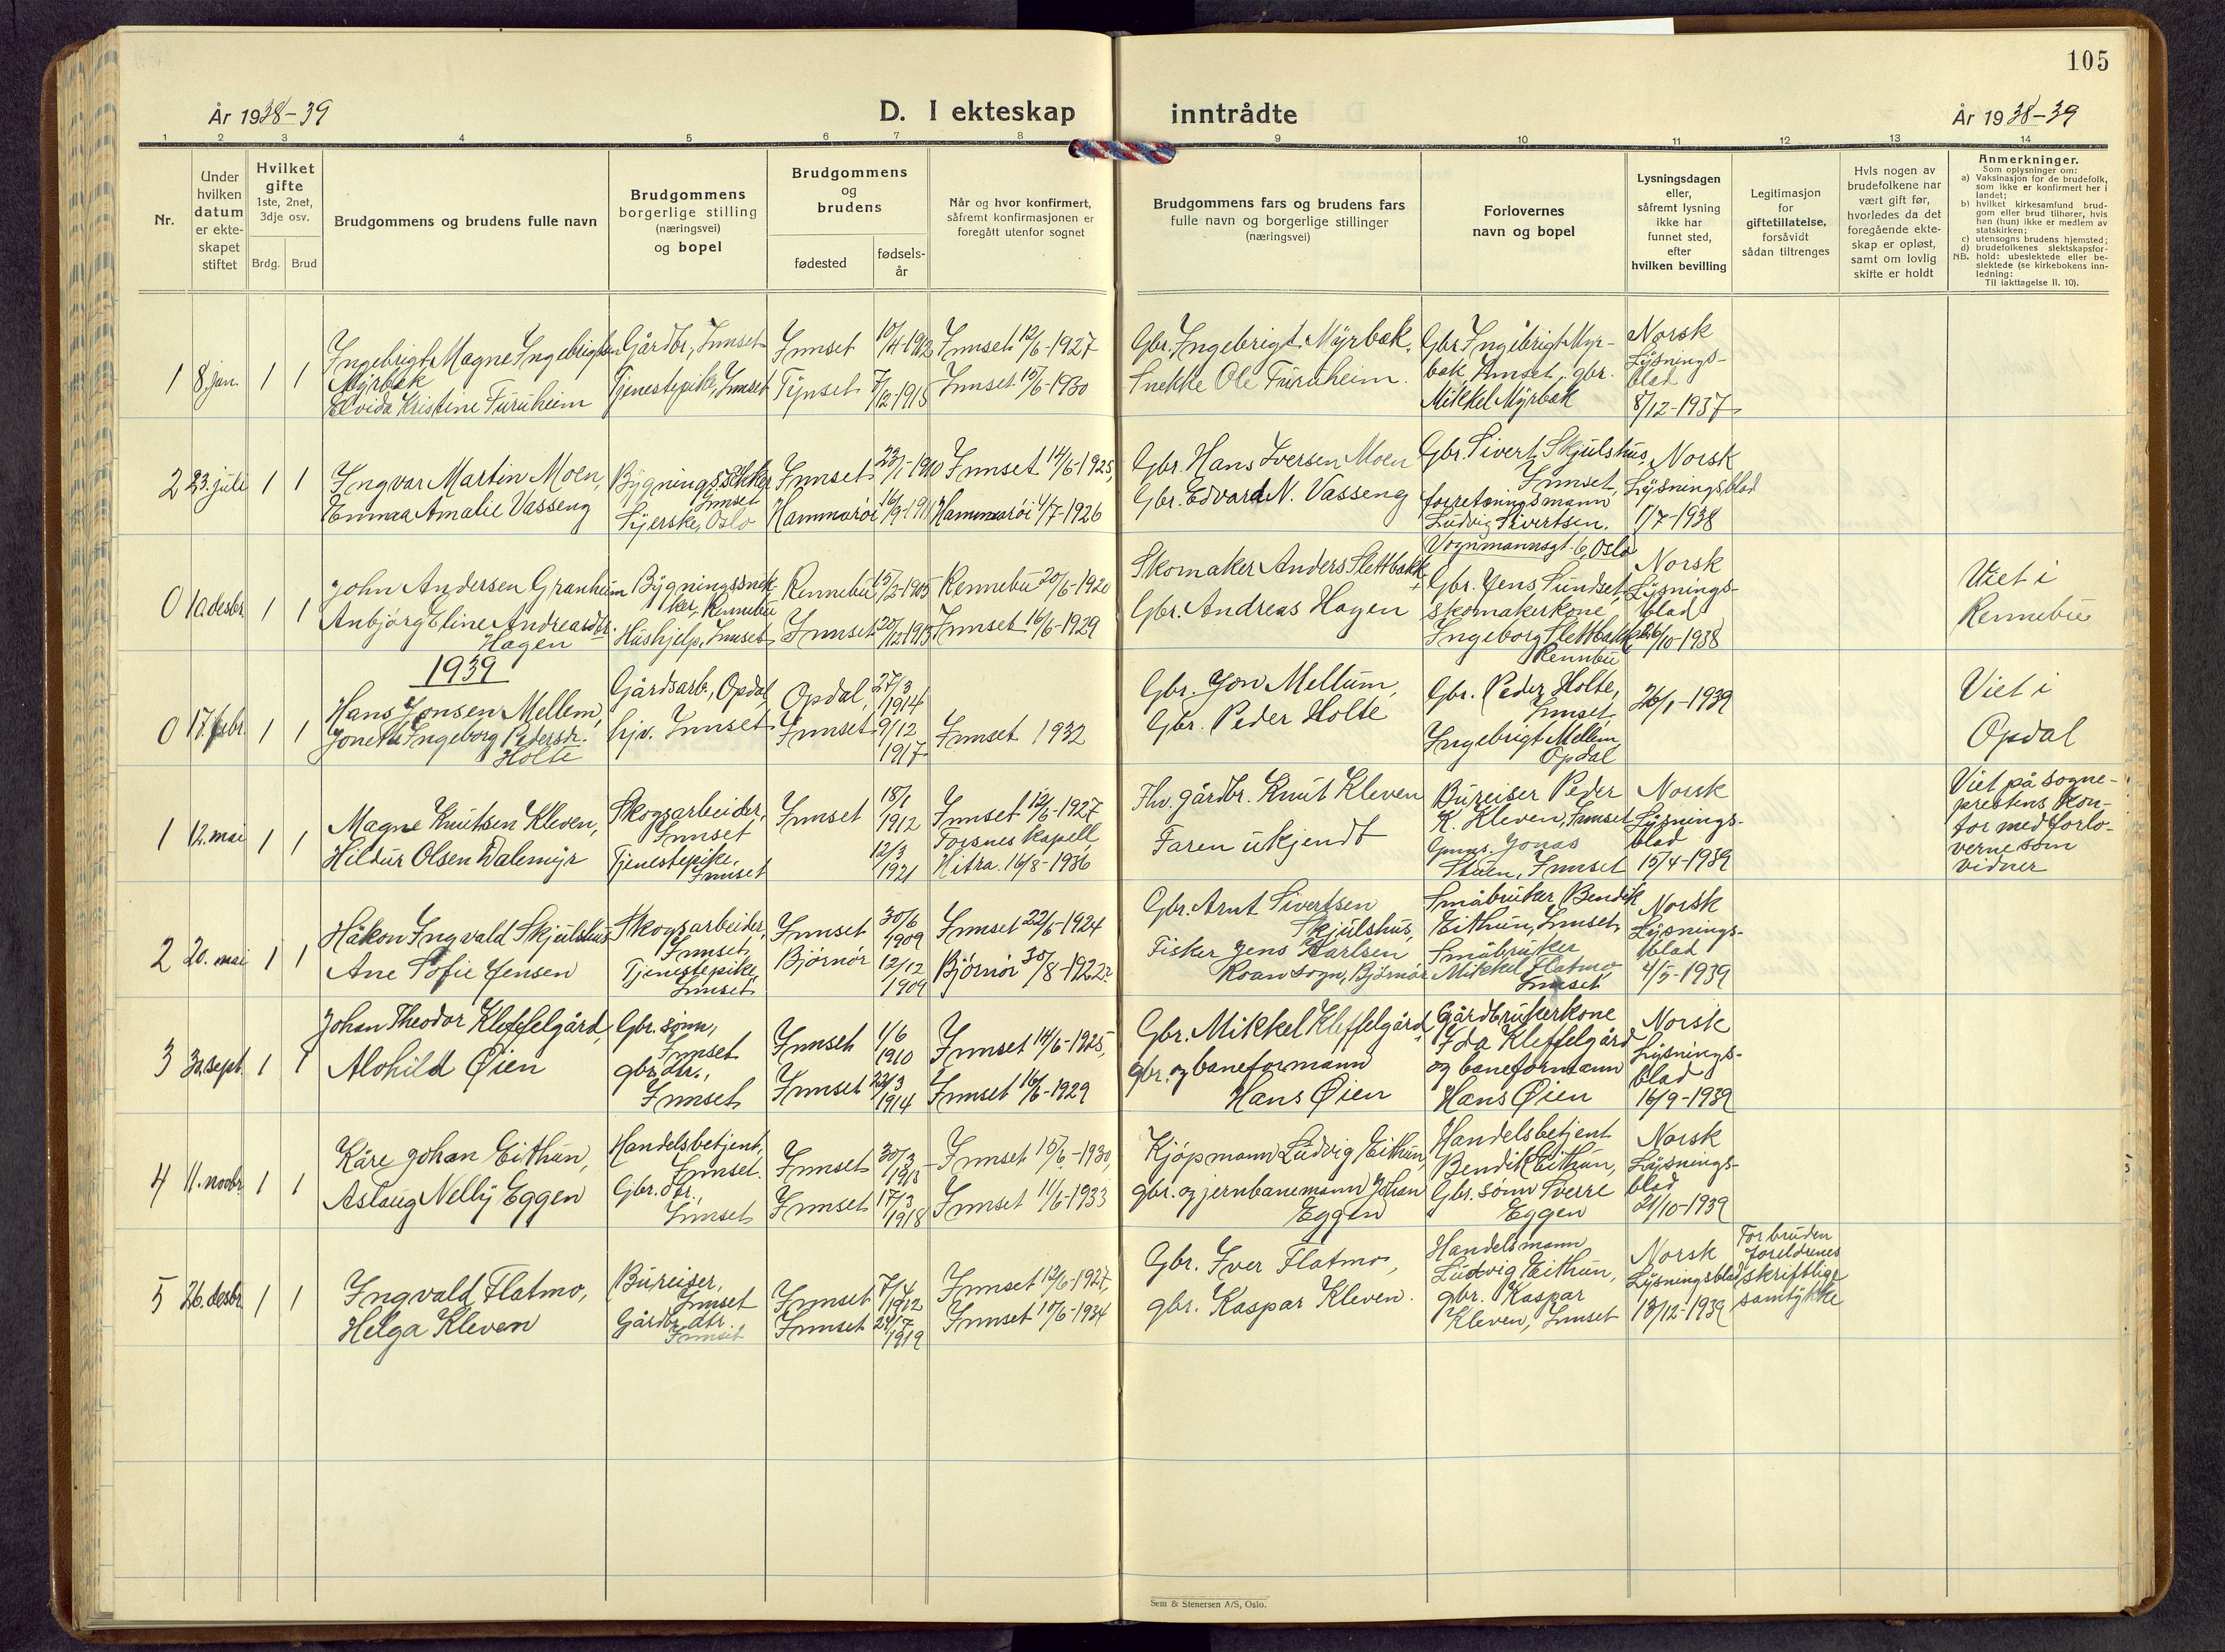 105
År 1938-39
D. I ekteskap inntrådte
År 1938-39
1 2 3 4 5 6 7 8 9 10 11 12 13 14
Nr.
Under hvilken datum er ekteskapet stiftet
Hvilket gifte 1ste, 2net, 3dje osv.
Brdg. Brud
Brudgommens og brudens fulle navn
Brudgommens borgerlige stilling (næringsvei) og bopel
Brudgommens og brudens
fødested
fødselsår
Når og hvor konfirmert, såfremt konfirmasjonen er foregått utenfor sognet
Brudgommens fars og brudens fars fulle navn og borgerlige stillinger (næringsvei)
Forlovernes navn og bopel
Lysningsdagen eller, såfremt lysning ikke har funnet sted, efter hvilken bevilling
Legitimasjon for giftetillatelse, forsåvidt sådan tiltrenges
Hvis nogen av brudefolkene har vært gift før, hvorledes da det foregående ekteskap er opløst, samt om lovlig skifte er holdt
Anmerkninger.
Som oplysninger om:
a) Vaksinasjon for de brudefolk, som ikke er konfirmert her i landet;
b) hvilket kirkesamfund brudgom eller brud tilhører, hvis han (hun) ikke er medlem av statskirken;
c) utensogns brudens hjemsted;
d) brudefolkenes slektskapsforhold: ubeslektede eller beslektede (se kirkebokens innledning:
NB.
Til iakttagelse II. 10).
1 8 jan. 1 1
Ingebrigt Magne Ingebrigtsen
Myrbak
Elvida Kristine Furuheim
Gårdbr., Innset
Tjenestepike, Innset
Innset 10/4-1912
Tynset 7/12-1915
Innset 12/6-1927
Innset 15/6-1930
Gbr. Ingebrigt Myrbak.
Snekke Ole Furuheim.
Gbr. Ingebrigt Myr-
bak Innset, gbr.
Mikkel Myrbak
Norsk
Lysnings-
blad
8/12-1937
2 23. juli 1 1
Ingvar Martin Moen,
Emma Amalie Vasseng
Bygningssnekker
Innset
Syerske, Oslo
Innset 23/1-1910
Hammarøi 16/9-1911
Innset 14/6-1925,
Hammarøi 4/7-1926
Gbr. Hans Iversen Moen
Gbr. Edvard N. Vasseng
Gbr. Sivert Skjulshus,
Innset,
forretningsmann
Ludvig Sivertsen,
Vognmannsgt. 6, Oslo
Norsk
Lysningsblad
1/7-1938
0 10. desbr. 1 1
John Andersen Granheim
Anbjørg Eline Andreasdtr.
Hagen
Bygningssnik-
ker, Rennebu
Hushjelp, Innset
Rennebu 15/2-1905
Innset 20/12-1915
Rennebu 20/6-1920
Innset 16/6-1929
Skomaker Anders Slettbakk
Gbr. Andreas Hagen
Gbr. Jens Sundset
skomakerkone,
Ingeborg Slettbakk
Rennbu
Norsk
Lysnings-
blad
26/10-1938
Viet i
Rennebu
1939
0 17. febr. 1 1
Hans Jonsen Mellem,
Jonetta Ingeborg Pedersdr.
Holte
Gårdsarb., Opdal
hjv. Innset
Opdal, 27/3 1914
Innset 9/12 1917
Innset 1932
Gbr. Jon Mellum,
Gbr. Peder Holte
Gbr. Peder Holte,
Innset
Ingebrigt Mellem
Opdal
26/1-1939
Viet i
Opdal
1 12. mai 1 1
Magne Knutsen Kleven,
Hildur Olsen Dalemyr
Skogsarbeider,
Innset
Tjenestepike,
Innset
Innset
18/1 1912
12/3 1921
Innset 12/6-1927
Forsnes kapell,
Hitra. 16/8-1936
Fhv. gårdbr. Knut Kleven
Faren ukjendt
Bureiser Peder
K. Kleven, Innset
Jonas
Stuen, Innset
Norsk
Lysnings-
blad
15/4-1939
Viet på sogne-
prestens kon-
tor med forlo-
verne som
vidner
2 20. mai 1 1
Håkon Ingvald Skjulshus
Ane Sofie Jensen
Skogsarbeider,
Innset,
Tjenestepike,
Innset
Innset 30/6 1909
Bjørnør 12/12 1909
Innset 22/6-1924
Bjørnør 30/8-1922?
Gbr. Arnt Sivertsen
Skjulshus,
Fisker Jens Karlsen
Roan sogn, Bjørnør
Småbruker Bendik
Eithun, Innset,
Småbruker
Mikkel Flatmo
Innset
Norsk
Lysnings-
blad
4/5-1939
3 30. sept. 1 1
Johan Theodor Kleffelgård,
Alohild Øien
Gbr. sønn,
Innset
gbr. dtr.,
Innset
Innset 1/6 1910
Innset 22/3 1914
Innset 14/6-1925,
Innset 16/6-1929
Gbr. Mikkel Kleffelgård,
gbr. og baneformann
Hans Øien
Gårdbrukerkone
Ida Kleffelgård
og baneformann
Hans Øien
Norsk
Lysnings-
blad
16/9-1939
4 11. novbr. 1 1
Kåre Johan Eithun,
Aslaug Nelly Eggen
Handelsbetjent,
Innset.
Gbr. dtr.,
Innset
Innset 30/3 1915
Innset 17/3 1918
Innset 15/6-1930,
Innset 11/6-1933
Kjøpmann Ludvig Eithun,
gbr. og jernbanemann Johan
Eggen
Handelsbetjent
Bendik Eithun,
Gbr. sønn Sverre
Eggen
Norsk
Lysnings-
blad
21/10-1939
5 26. desbr. 1 1
Ingvald Flatmo,
Helga Kleven
Bureiser,
Innset
Gårdbr. dtr.
Innset
Innset 7/4 1912
Innset 24/7 1919
Innset 12/6-1927,
Innset 10/6-1934
Gbr. Iver Flatmo,
gbr. Kaspar Kleven.
Handelsmann
Ludvig Eithun,
gbr. Kaspar
Kleven, Innset
Norsk
Lysningsblad
13/12-1939
For bruden
foreldrenes
skriftlige
samtykke
Sem & Stenersen A/S, Oslo.